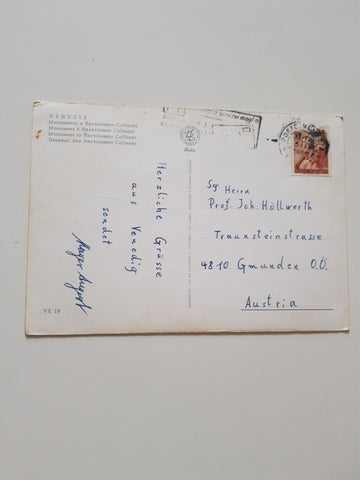 VENEZIA
Monumento a Bartolomeo Colleoni
Monument à Bartolomeo Colleoni
Monument to Bartolomeo Colleoni
Denkmal des Bartolomeo Colleoni
Herzliche Grüsse
aus Venedig
sendet
Mayer August
Sg. Herrn
Prof. Joh. Höllwerth
Traunsteinstrasse
4810 Gmunden O.Ö.
Austria
VE 19